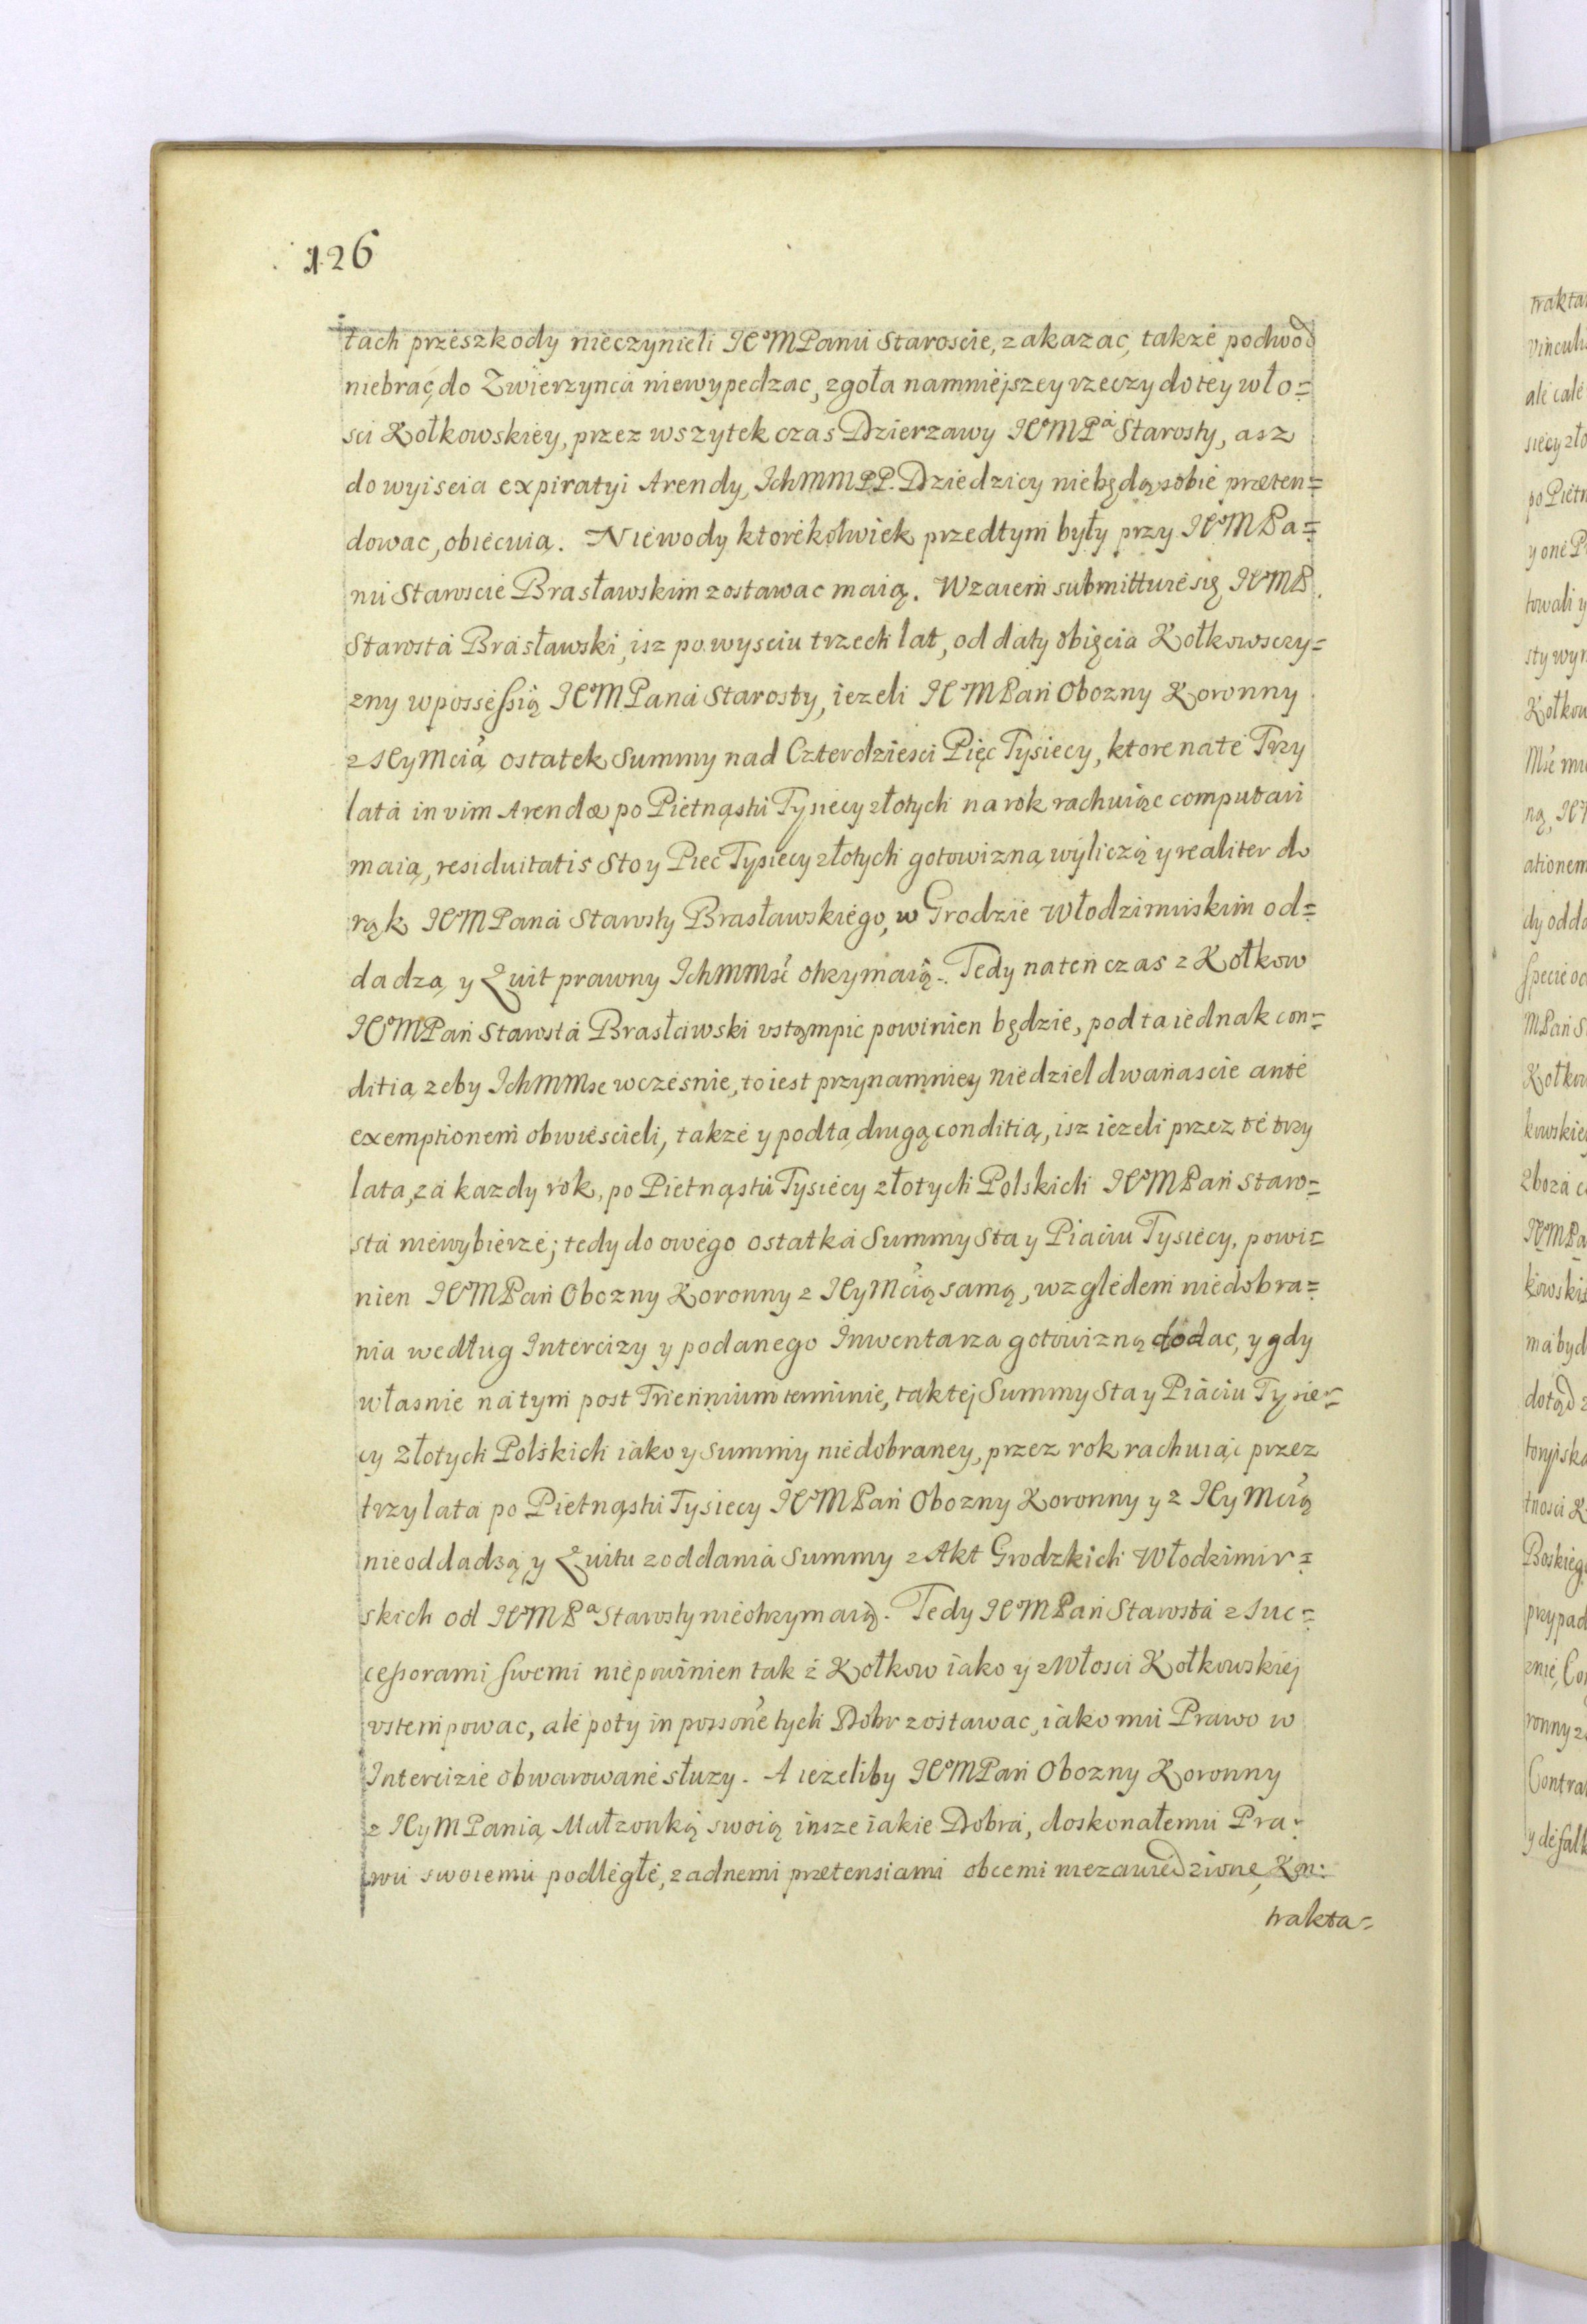 126
tach przeszkody nieczynieli JEoMPanu Staroscie, zakazac, takze podwod
niebrac, do Zwierzynca niewypedzac, zgoła namnieyszey rzeczy do tey wło=
sci Kołkowskiey, przez wszytek czas Dzierzawy JEoMPa Starosty, asz
do wyiscia expiratyi Arendy, IchMMPP. Dziedzicy niebędą sobie præten=
dowac, obiecuią. Niewody ktorekolwiek przedtym były przy JEoMPa=
nu Staroscie Brasławskim zostawac maią. Wzaiem submittuie się JEoMP.
Starosta Brasławski, isz po wysciu trzech lat, od daty obięcia Kołkowsczy=
zny w possessią JEoMPana Starosty, iezeli JEoMPan Obozny Koronny
z JEyMcią, ostatek Summy nad Czterdziesci Pięc Tysiecy, ktore na te Trzy
lata in vim Arendæ po Pietnąstu Tysiecy złotych na rok rachuiąc computari
maią, residuitatis Sto y Piec Tysiecy złotych gotowizną wyliczą y realiter do
rąk JEoMPana Starosty Brasławskiego, w Grodzie Włodzimirskim od=
dadzą, y Quit prawny IchMMsc otrzymaią. Tedy na ten czas z Kołkow
JEoMPan Starosta Brasławski ustąmpic powinien będzie, pod ta iednak con=
ditią, zeby IchMMsc wczesnie, to iest przynamniey niedziel dwanascie ante
exemptionem obwiescieli, takze y pod tą drugą conditią, isz iezeli przez te trzy
lata, za kazdy rok, po Pietnąstu Tysiecy złotych Polskich JEoMPan Staro=
sta niewybierze; tedy do owego ostatka Summy Sta y Piaciu Tysiecy, powi=
nien JEoMPan Obozny Koronny z JEyMcią samą, względem niedobra=
nia według Intercizy y podanego Inwentarza gotowizną dodac, y gdy
własnie na tym post Triennium terminie, tak tej Summy Sta y Piaciu Tysie=
cy Złotych Polskich iako y summy niedobraney, przez rok rachuiąc przez
trzy lata po Pietnąstu Tysiecy JEoMPan Obozny Koronny y z JEyMcią
nieoddadzą, y Quitu z oddania Summy z Akt Grodzkich Włodzimir=
skich od JEoMPa Starosty nieotrzymaią. Tedy JEoMPan Starosta z Suc=
cessorami swemi niepowinien tak z Kołkow iako y z Włosci Kołkowskiej
ustempowac, ale poty in possone tych Dobr zostawac, iako mu Prawo w
Intercizie obwarowane słuzy. A iezeliby JEoMPan Obozny Koronny
z JEyMPanią Małzonką swoią insze iakie Dobra, doskonałemu Pra=
wu swoiemu podległe, zadnemi prætensiami obcemi niezawiedzione, Kon:
trakta=